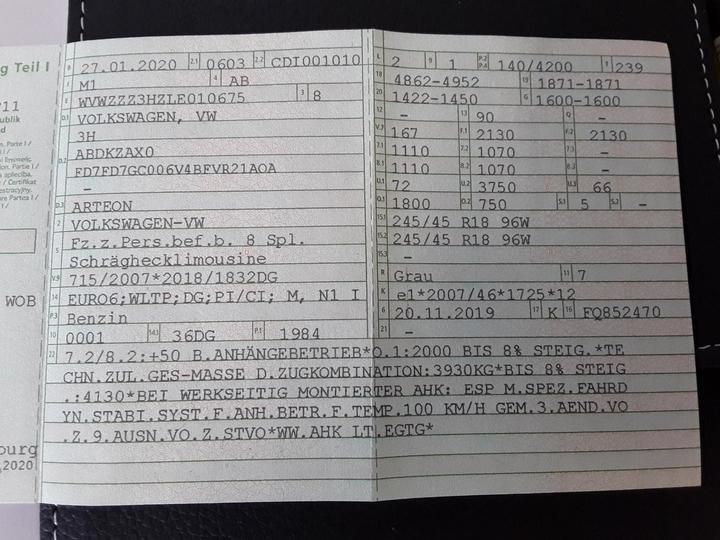 g Teil I
P11
ublik
d
WOB
ourg
2020
B 27.01.2020 2.1 0603 2.2 CDI001010
J M1 4 AB
E WVWZZZ3HZLE010675 3 8
D.1 VOLKSWAGEN, VW
3H
D.2 ABDKZAX0
FD7FD7GC006V4BFVR21AOA
–
D.3 ARTEON
2 VOLKSWAGEN-VW
5 Fz.z.Pers.bef.b. 8 Spl.
Schräghecklimousine
V.9 715/2007*2018/1832DG
14 EURO6;WLTP;DG;PI/CI; M, N1 I
P.3 Benzin
10 0001 14.1 36DG P.1 1984
L 2 9 1 P.2 P.4 140/4200 T 239
18 4862-4952 19 1871-1871
20 1422-1450 G 1600-1600
12 – 13 90 Q –
V.7 167 F.1 2130 F.2 2130
7.1 1110 7.2 1070 7.3 –
8.1 1110 8.2 1070 8.3 –
U.1 72 U.2 3750 U.3 66
O.1 1800 O.2 750 S.1 5 S.2 –
15.1 245/45 R18 96W
15.2 245/45 R18 96W
15.3 –
R Grau 11 7
K e1*2007/46*1725*12
6 20.11.2019 17 K 16 FQ852470
21 –
22 7.2/8.2:+50 B.ANHÄNGEBETRIEB*O.1:2000 BIS 8% STEIG.*TE
CHN.ZUL.GES-MASSE D.ZUGKOMBINATION:3930KG*BIS 8% STEIG
.:4130*BEI WERKSEITIG MONTIERTER AHK: ESP M.SPEZ.FAHRD
YN.STABI.SYST.F.ANH.BETR.F.TEMP.100 KM/H GEM.3.AEND.VO
.Z.9.AUSN.VO.Z.STVO*WW.AHK LT.EGTG*